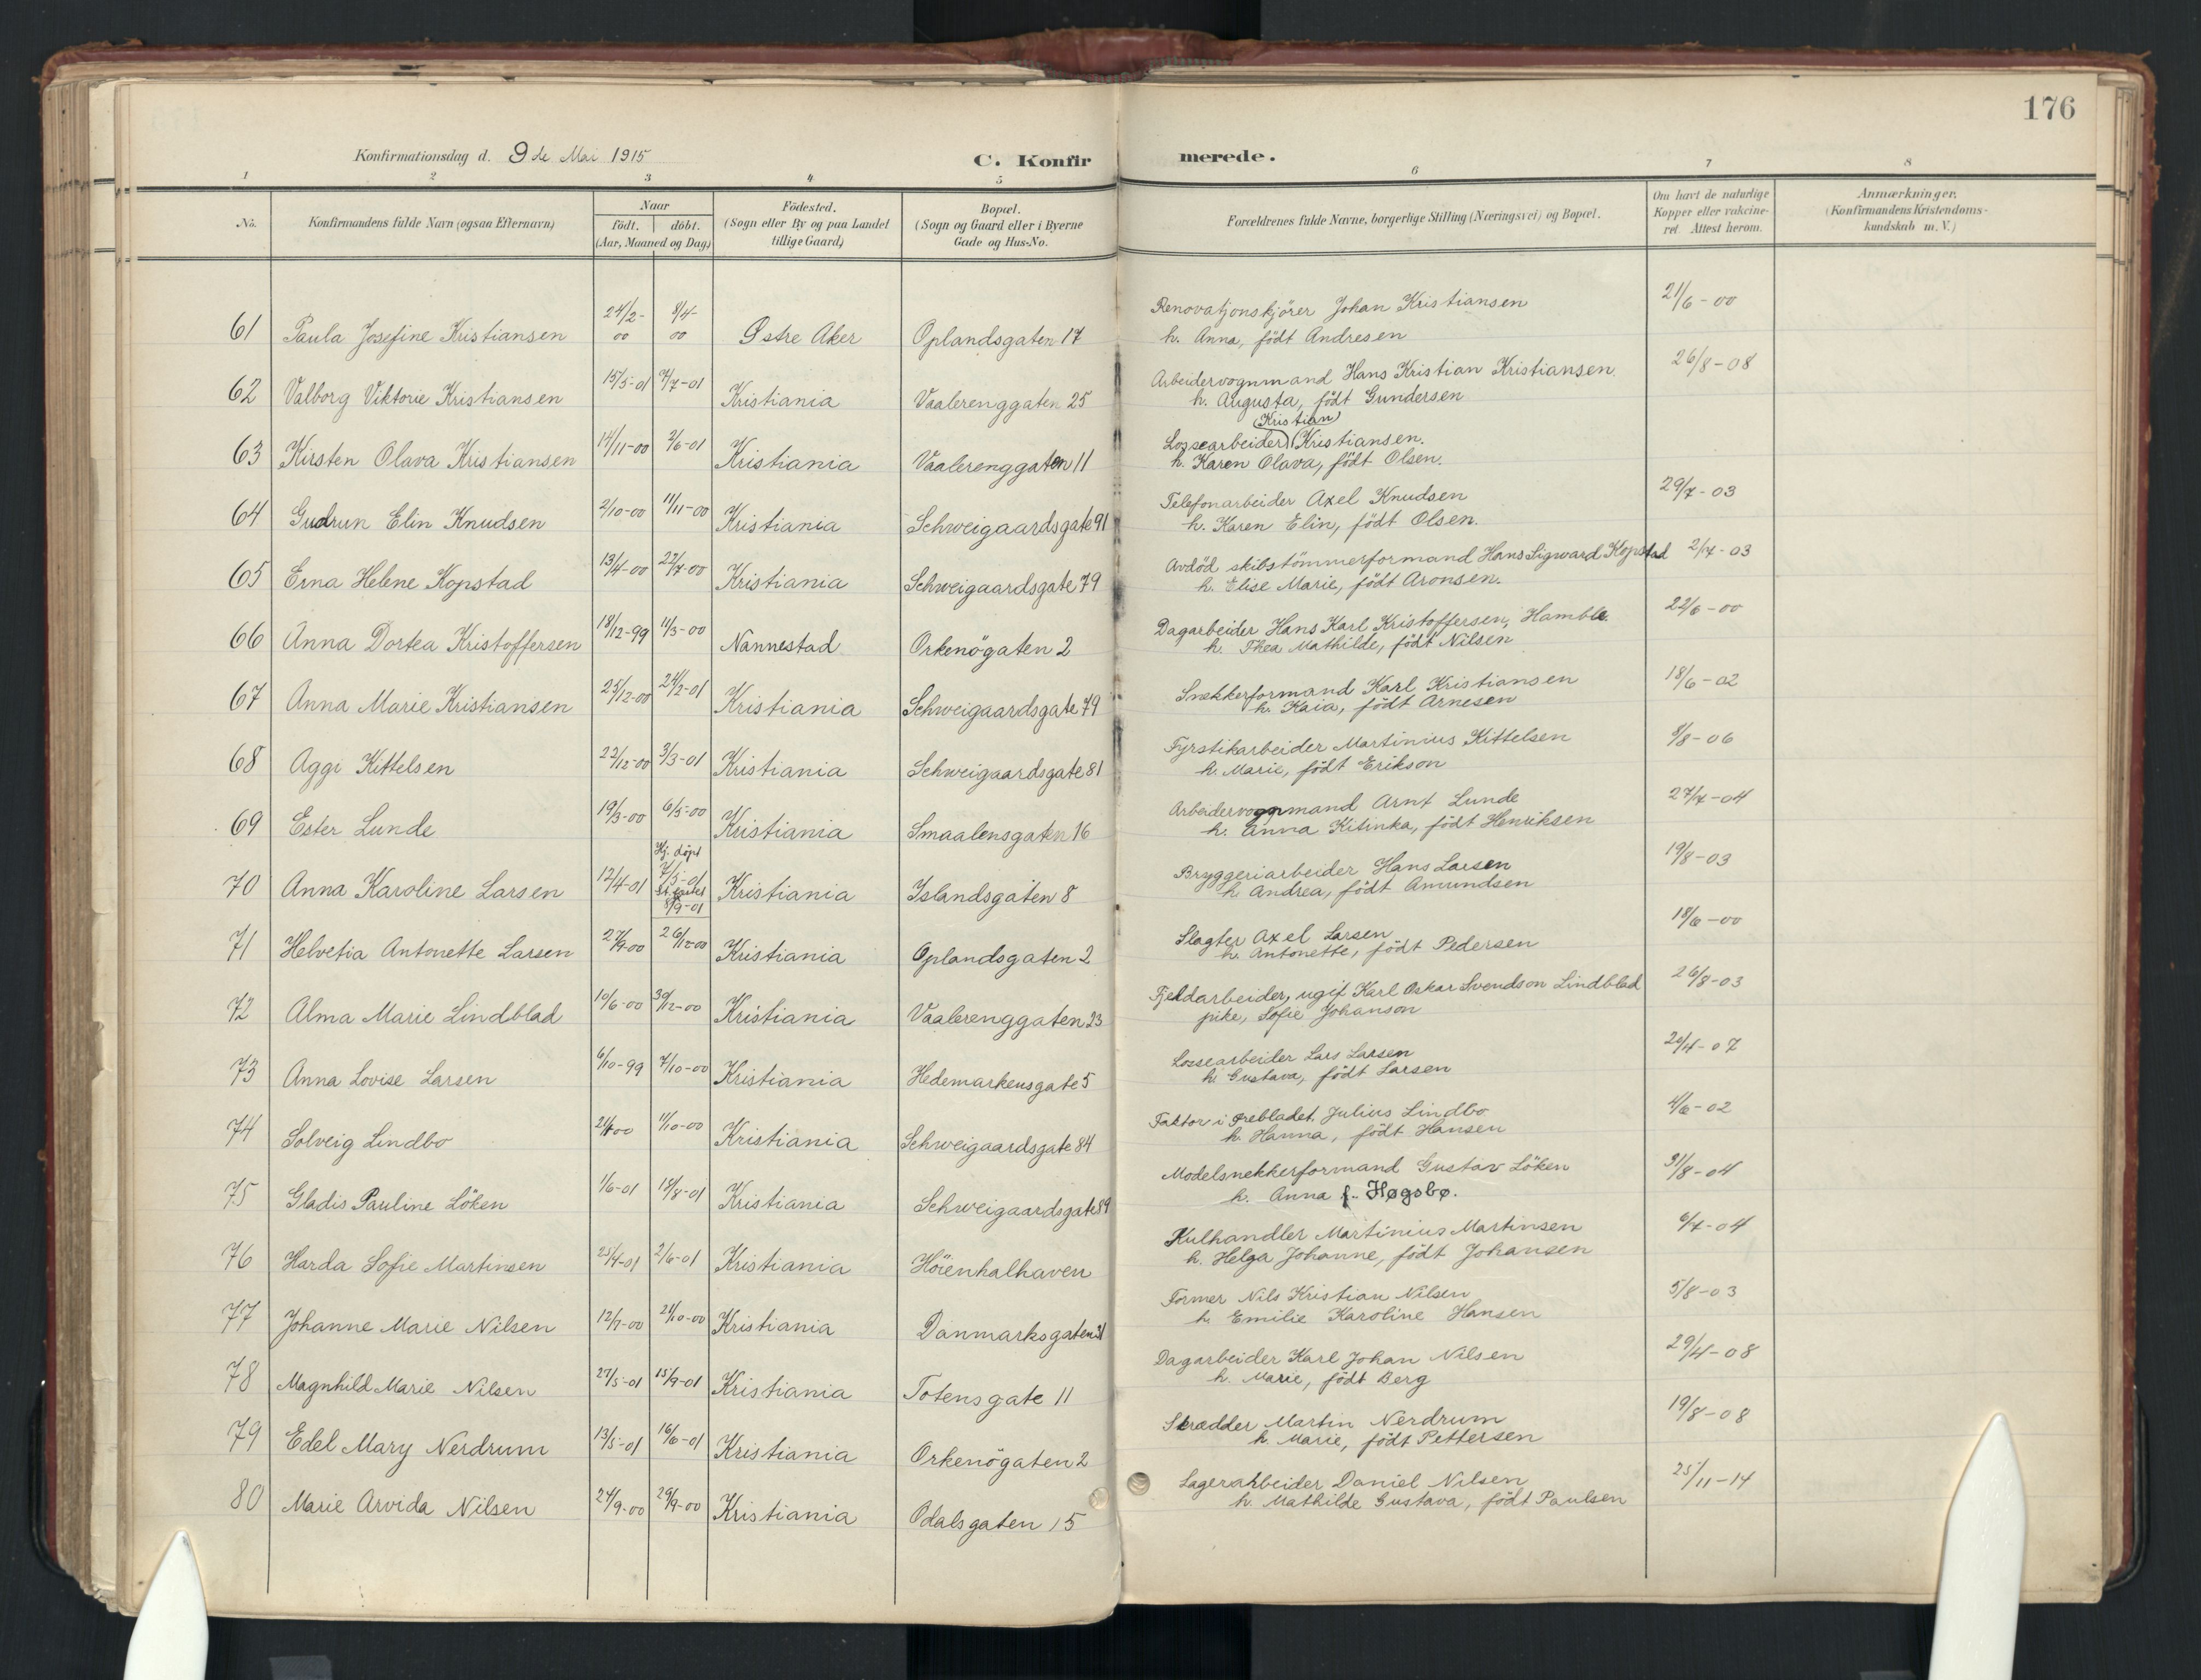 176
Konfirmationsdag d. 9de Mai 1915
C. Konfirmerede.
1 2 3 4 5 6 7 8
No. Konfirmandens fulde Navn (ogsaa Efternavn) Naar födt. döbt. (Aar, Maaned og Dag) Födested. (Sogn eller By og paa Landet tillige Gaard) Bopæl. (Sogn og Gaard eller i Byerne Gade og Hus-No. Forældrenes fulde Navne, borgerlige Stilling (Næringsvei) og Bopæl. Om havt de naturlige Kopper eller vakcineret. Attest herom. Anmærkninger. (Konfirmandens Kristendomskundskab m. V.)
61 Paula Josefine Kristiansen 24/2-00 8/4-00 Østre Aker Oplandsgaten 17 Renovatjonskjörer Johan Kristiansen 21/6-00
h. Anna, födt Andresen
62 Valborg Viktorie Kristiansen 15/5-01 7/7-01 Kristiania Vaalerenggaten 25 Arbeidervognmand Hans Kristian Kristiansen 26/8-08
h. Augusta, födt Gundersen
63 Kirsten Olava Kristiansen 14/11-00 2/6-01 Kristiania Vaalerenggaten 11 Lossearbeider (Kristian) Kristiansen.
h. Karen Olava, födt Olsen.
64 Gudrun Elin Knudsen 2/10-00 11/11-00 Kristiania Schweigaardsgate 91 Telefonarbeider Axel Knudsen 29/7-03
h. Karen Elin, födt Olsen.
65 Erna Helene Kopstad 13/4-00 22/7-00 Kristiania Schweigaardsgate 79 Avdöd skibstömmerformand Hans Sigward Kopstad 2/7-03
h. Elise Marie, födt Aronsen.
66 Anna Dortea Kristoffersen 18/12-99 11/3-00 Nannestad Orkenögaten 2 Dagarbeider Hans Karl Kristoffersen, Hamble. 22/6-00
h. Thea Mathilde, födt Nilsen
67 Anna Marie Kristiansen 25/12-00 24/2-01 Kristiania Schweigaardsgate 79 Snekkerformand Karl Kristiansen 18/6-02
h. Kaia, födt Arnesen
68 Aggi Kittelsen 22/12-00 3/3-01 Kristiania Schweigaardsgate 81 Fyrstikarbeider Martinius Kittelsen 8/8-06
h. Marie, födt Erikson
69 Ester Lunde 19/3-00 6/5-00 Kristiania Smaalensgaten 16 Arbeidervognmand Arnt Lunde 27/7-04
h. Anna Kitinka, födt Henriksen
70 Anna Karoline Larsen 12/4-01 Hj. döpt 7/5-01 8/9-01 Kristiania Islandsgaten 8 Bryggeriarbeider Hans Larsen 19/8-03
h. Andrea, födt Amundsen
71 Helvetia Antonette Larsen 27/9-00 26/12-00 Kristiania Oplandsgaten 2 Slagter Axel Larsen 18/6-00
h. Antonette, födt Pedersen
72 Alma Marie Lindblad 10/6-00 30/12-00 Kristiania Vaalerenggaten 23 Fjeldarbeider, ugif Karl Oskar Svendson Lindblad 26/8-03
pike, Sofie Johanson
73 Anna Lovise Larsen 6/10-99 7/10-00 Kristiania Hedemarkensgate 5 Lossearbeider Lars Larsen 20/4-07
h. Gustava, födt Larsen
74 Solveig Lindbo 11/10-00 Kristiania Schweigaardsgate 84 Faktor i Ørebladet Julius Lindbo 4/6-02
h. Hanna, födt Hansen
75 Gladis Pauline Löken 1/6-01 18/8-01 Kristiania Schweigaardsgate 89 Modelsnekkerformand Gustav Löken 31/8-04
h. Anna f. Høgsbø.
76 Harda Sofie Martinsen 25/4-01 2/6-01 Kristiania Höienhalhaven Kulhandler Martinius Martinsen 6/7-04
h. Helga Johanne, födt Johansen
77 Johanne Marie Nilsen 12/7-00 21/10-00 Kristiania Danmarksgaten 31 Former Nils Kristian Nilsen 5/8-03
h. Emilie Karoline Hansen
78 Magnhild Marie Nilsen 27/5-01 15/9-01 Kristiania Totensgate 11 Dagarbeider Karl Johan Nilsen 29/4-08
h. Marie, födt Berg
79 Edel Mary Nerdrum 13/5-01 16/6-01 Kristiania Orkenögaten 2 Skrædder Martin Nerdrum 19/8-08
h. Marie, födt Pettersen
80 Marie Arvida Nilsen 24/9-00 29/9-00 Kristiania Odalsgaten 15 Lagerarbeider Daniel Nilsen 25/11-14
h. Mathilde Gustava, födt Paulsen